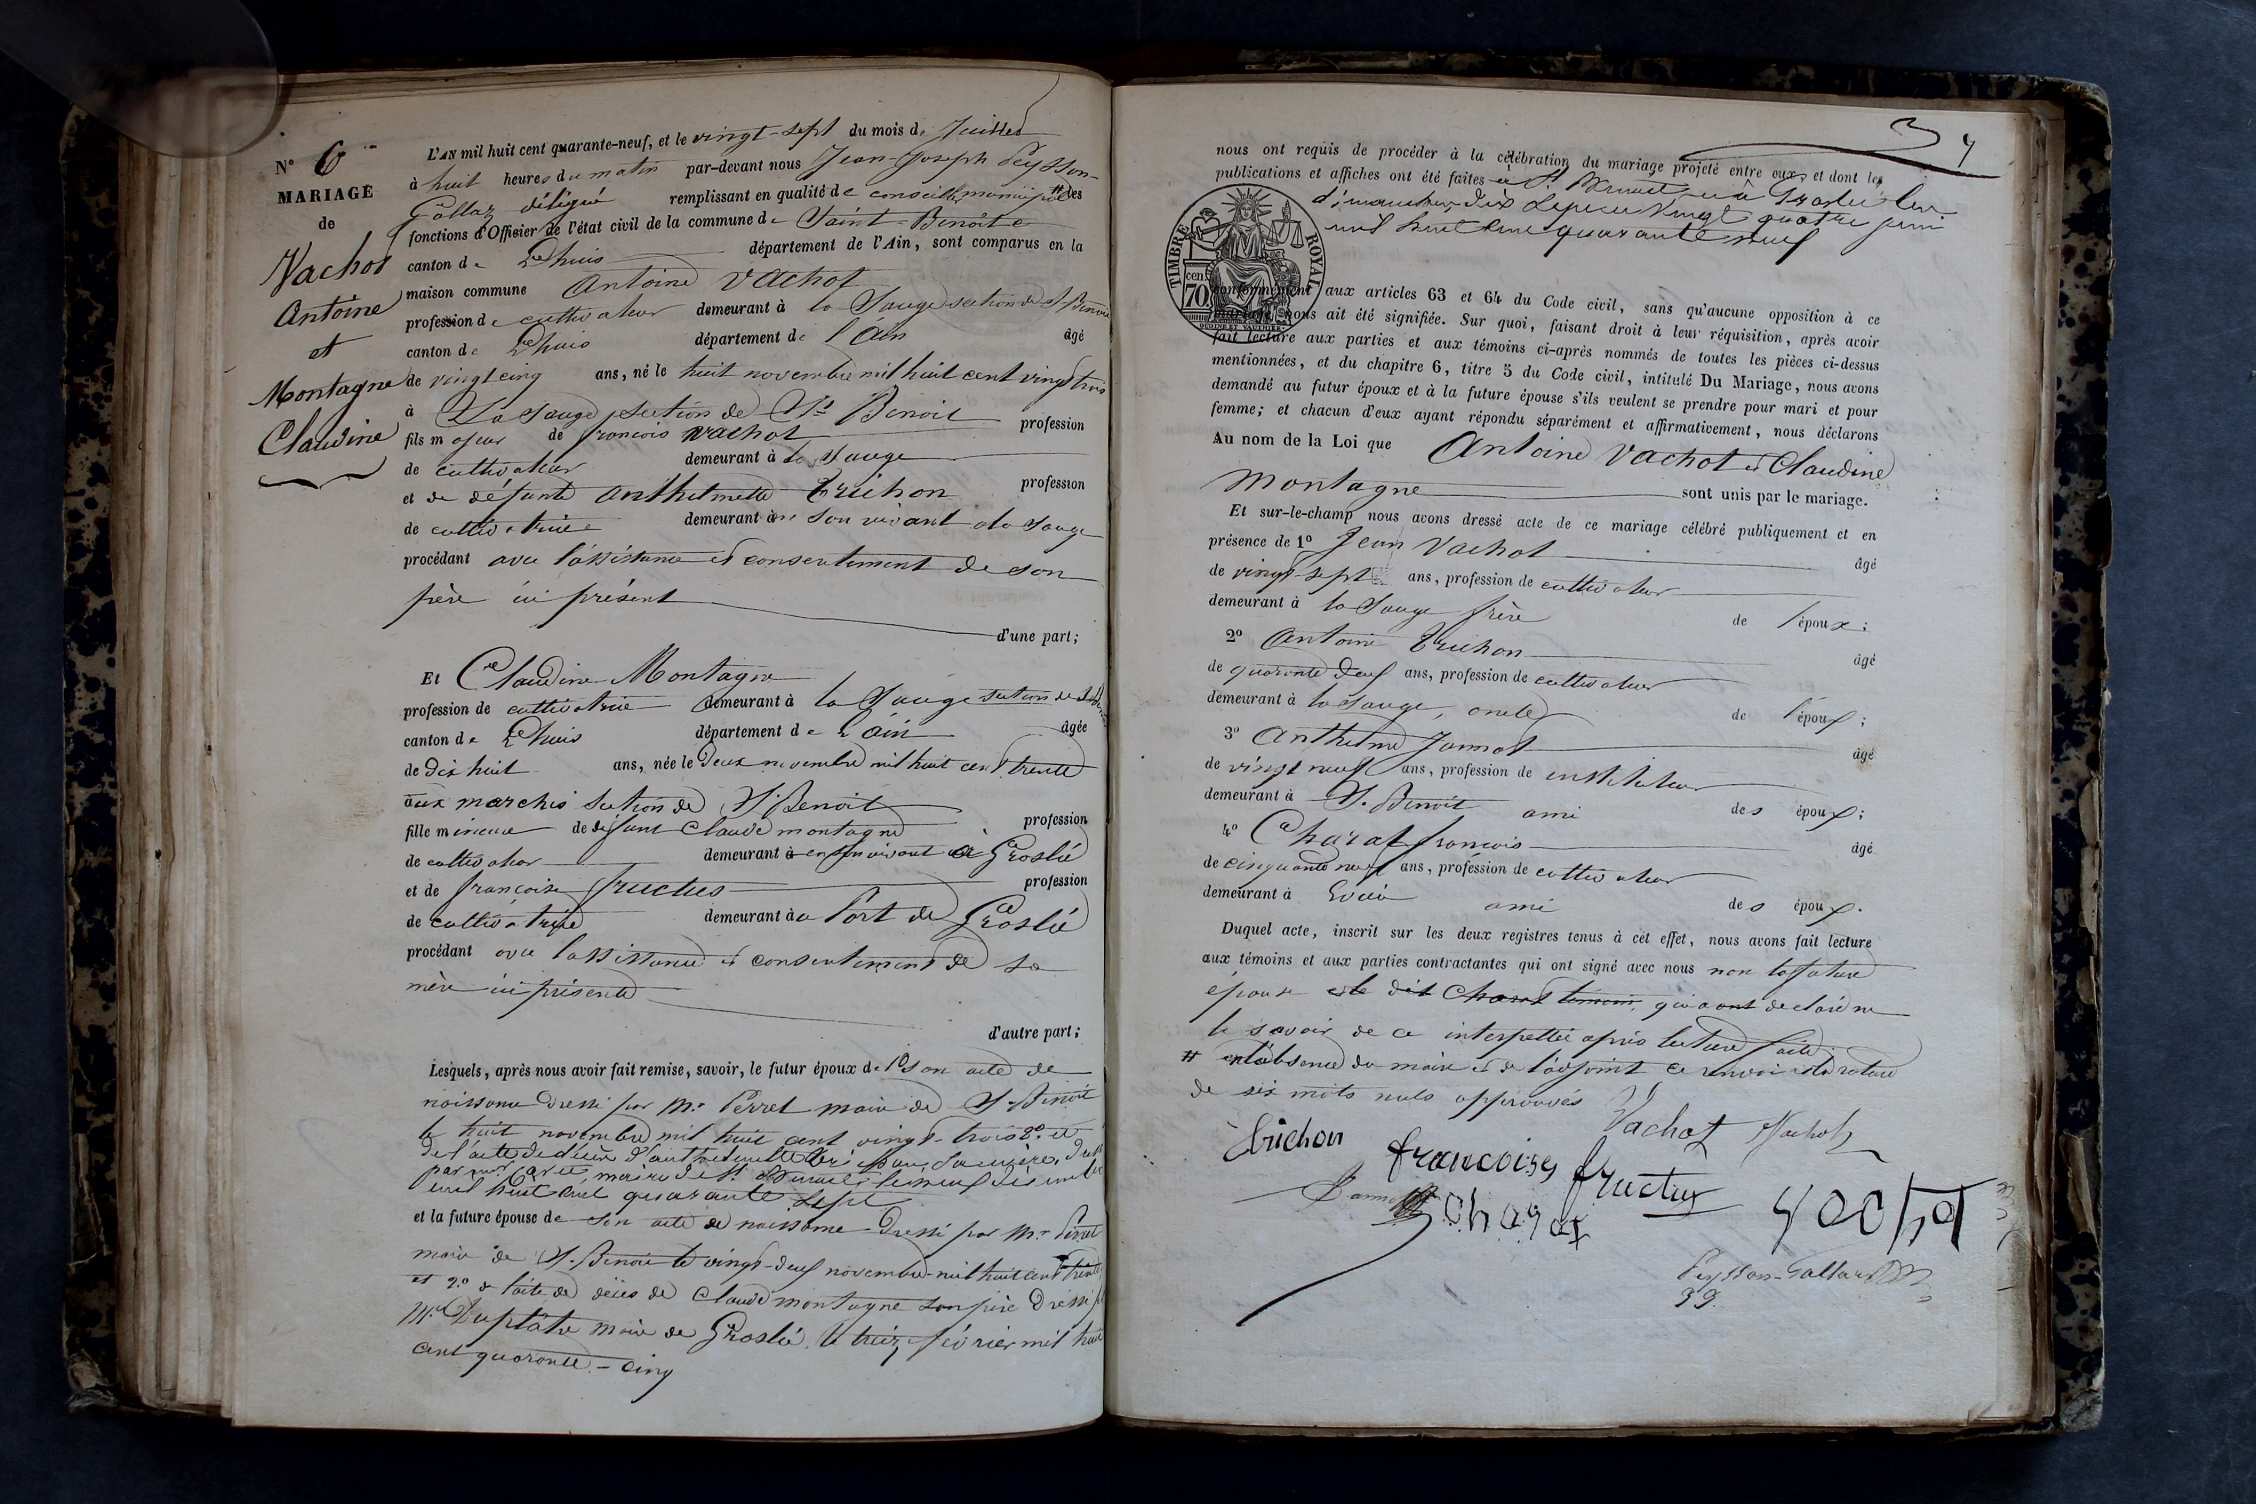 N° 6
MARIAGE
de
Vachot
Antoine
et
Montagne
Claudine
L'AN mil huit cent quarante-neuf, et le vingt-sept du mois de Juillet
à huit heures du matin par-devant nous Jean-Joseph Peysson-
Gallaz délégué remplissant en qualité de conseiller municipal # les
fonctions d'Officier de l'état civil de la commune de Saint-Benoît
canton de Lhuis département de l'Ain, sont comparus en la
maison commune Antoine Vachot
profession de cultivateur demeurant à la Sauge section de St Benoit
canton de Lhuis département de l'Ain âgé
de vingt cinq ans, né le huit novembre mil huit cent vingt trois
à La Sauge section de St Benoit
fils majeur de francois Vachot profession
de cultivateur demeurant à la Sauge
et de défunte Anthelmette Trichon profession
de cultivatrice demeurant en son vivant à la Sauge
procédant avec l'assistance et consentement de son
père ici présent
d'une part;
Et Claudine Montagne
profession de cultivatrice demeurant à la Sauge section de St Benoit
canton de Lhuis département de l'ain âgée
de dix huit ans, née le deux novembre mil huit cent trente
aux marchés section de St Benoit
fille mineure de défunt Claude montagne profession
de cultivateur demeurant en son vivant à Groslée
et de françoise fructus profession
de cultivatrice demeurant au Port de Groslée
procédant avec l'assistance et consentement de sa
mère ici présente
d'autre part;
Lesquels, après nous avoir fait remise, savoir, le futur époux de 1° son acte de
naissance dressé par Mr Perret maire de St Benoit
le huit novembre mil huit cent vingt-trois 2° et
de l'acte de décès d'anthelmette Trichon, sa mère, dressé
par maire de St Benoit le neuf décembre
mil huit cent quarante sept
et la future épouse de son acte de naissance dressé par Mr Perret
maire de St Benoit le vingt-deux novembre mil huit cent trente
et 2° de l'acte de décès de Claude montagne son père dressé par
Mr Duplâtre maire de Groslée le treize février mil huit
cent quarante-cinq
nous ont requis de procéder à la célébration du mariage projeté entre eux, et dont les
publications et affiches ont été faites à St Benoit et à Groslée les
dimanches dix sept et vingt quatre juin
mil huit cent quarante neuf
TIMBRE ROYAL
70 cen.
conformément aux articles 63 et 64 du Code civil, sans qu'aucune opposition à ce
mariage nous ait été signifiée. Sur quoi, faisant droit à leur réquisition, après avoir
fait lecture aux parties et aux témoins ci-après nommés de toutes les pièces ci-dessus
mentionnées, et du chapitre 6, titre 5 du Code civil, intitulé Du Mariage, nous avons
demandé au futur époux et à la future épouse s'ils veulent se prendre pour mari et pour
femme; et chacun d'eux ayant répondu séparément et affirmativement, nous déclarons
Au nom de la Loi que Antoine Vachot et Claudine
Montagne sont unis par le mariage.
Et sur-le-champ nous avons dressé acte de ce mariage célébré publiquement et en
présence de 1° Jean Vachot âgé
de vingt-sept ans, profession de cultivateur
demeurant à la Sauge frère de l'époux;
2° Antoine Trichon âgé
de quarante deux ans, profession de cultivateur
demeurant à la Sauge, oncle de l'époux;
3° Anthelme Jannot âgé
de vingt neuf ans, profession de instituteur
demeurant à St. Benoit ami des époux;
4° Charat francois âgé
de cinquante neuf ans, profession de cultivateur
demeurant à ami des époux.
Duquel acte, inscrit sur les deux registres tenus à cet effet, nous avons fait lecture
aux témoins et aux parties contractantes qui ont signé avec nous non la future
épouse et le dit Charat témoin qui a ont déclaré ne
le savoir de ce interpellée après lecture faite
# en l'absence du maire et de l'adjoint ce renvoi et la rature
de six mots nuls approuvés
Vachot Vachot
Trichon
francoise fructus
Jannot
Charat
Peysson-Gallaz